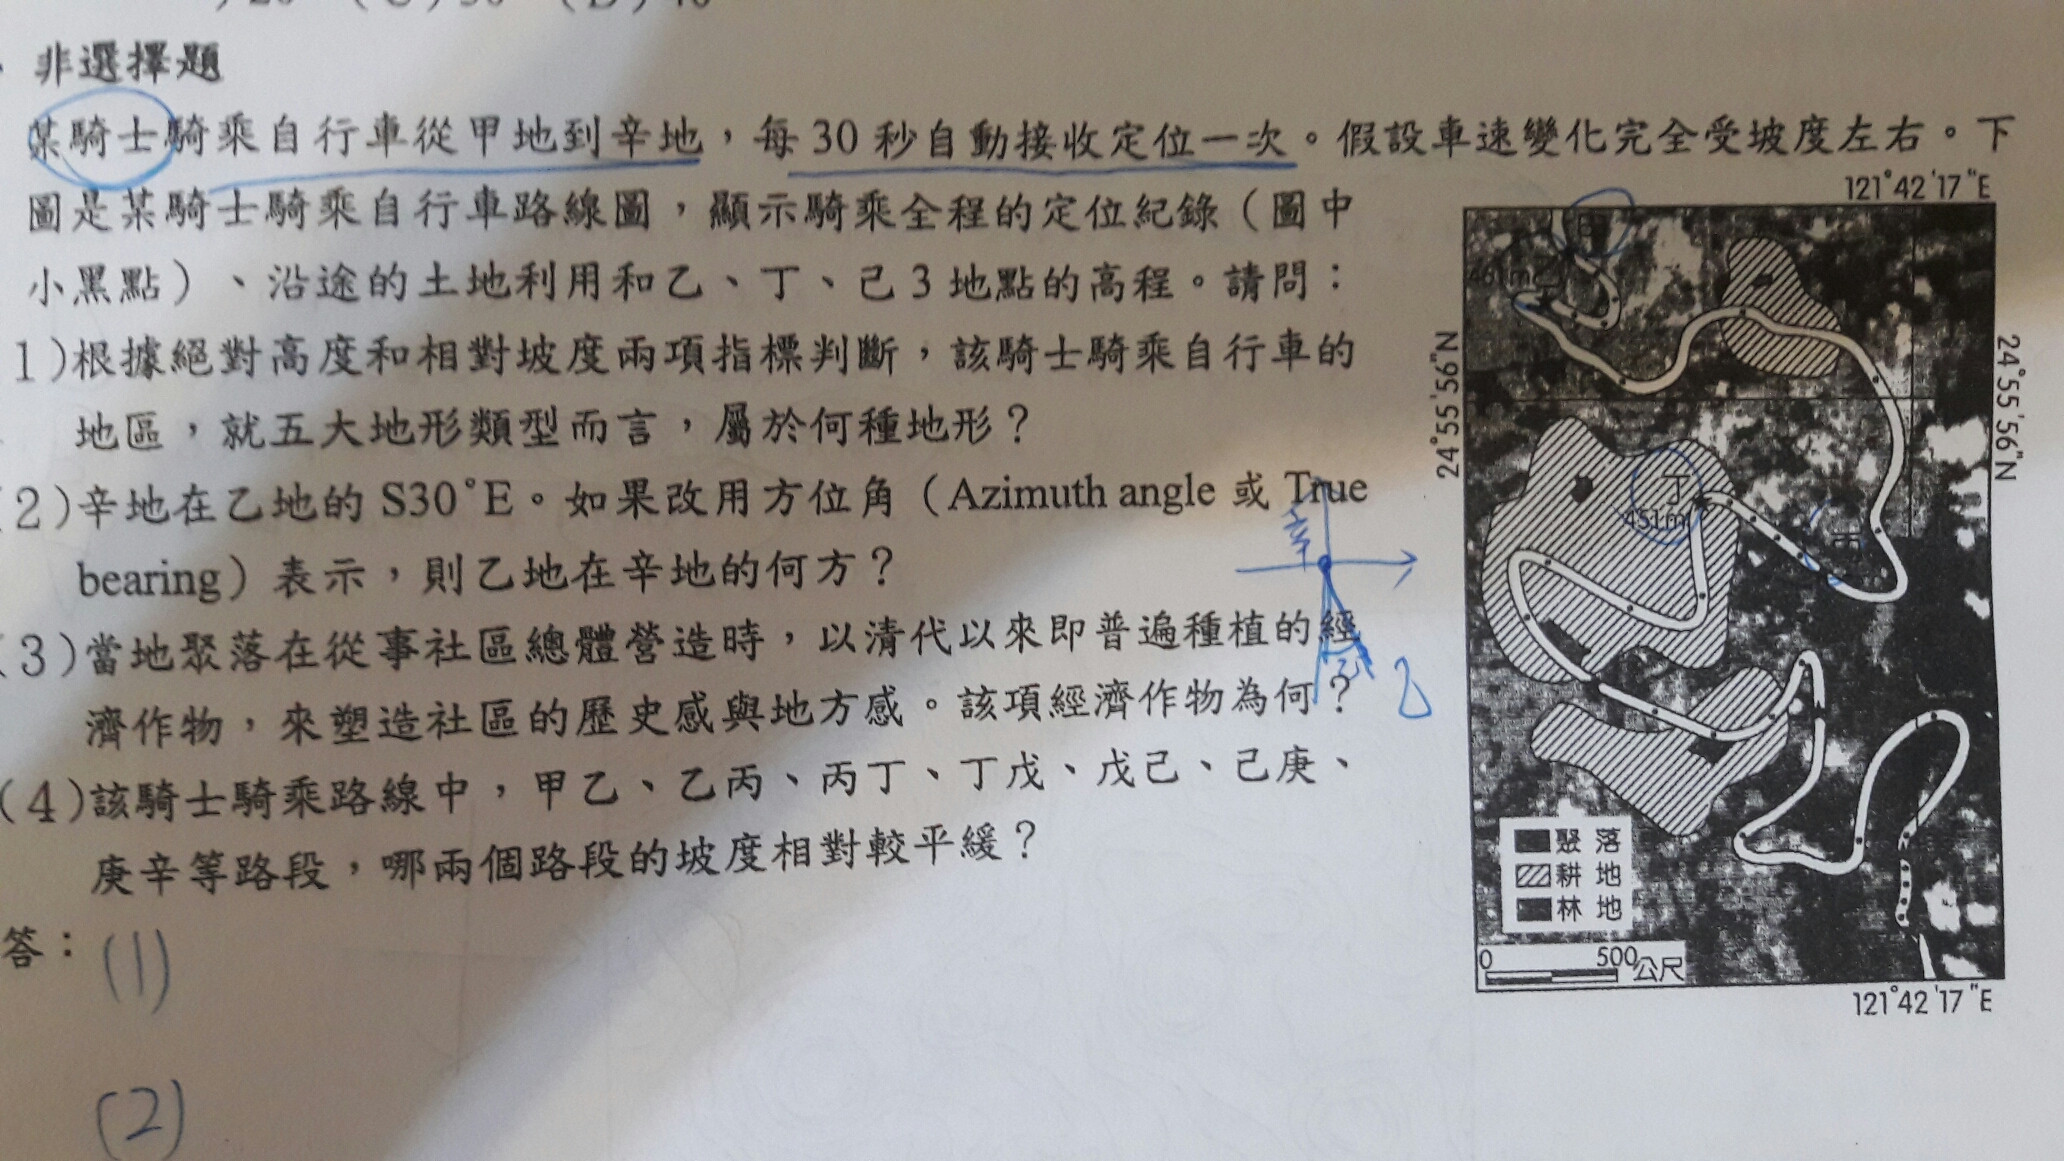 非選擇題
某騎士騎乘自行車從甲地到辛地，每30秒自動接收定位一次。假設車速變化完全受坡度左右。下
圖是某騎士騎乘自行車路線圖，顯示騎乘全程的定位紀錄（圖中
小黑點）、沿途的土地利用和乙、丁、己3地點的高程。請問：
1)根據絕對高度和相對坡度兩項指標判斷，該騎士騎乘自行車的
地區，就五大地形類型而言，屬於何種地形？
(2)辛地在乙地的S30°E。如果改用方位角（Azimuth angle 或 True
bearing）表示，則乙地在辛地的何方？
(3)當地聚落在從事社區總體營造時，以清代以來即普遍種植的經
濟作物，來塑造社區的歷史感與地方感。該項經濟作物為何？
(4)該騎士騎乘路線中，甲乙、乙丙、丙丁、丁戊、戊己、己庚、
庚辛等路段，哪兩個路段的坡度相對較平緩？
答：
(1)
(2)
辛
乙
121°42'17"E
甲
24°55'56"N
24°55'56"N
丁
451m
丙
聚落
耕地
林地
0 500公尺
121°42'17"E